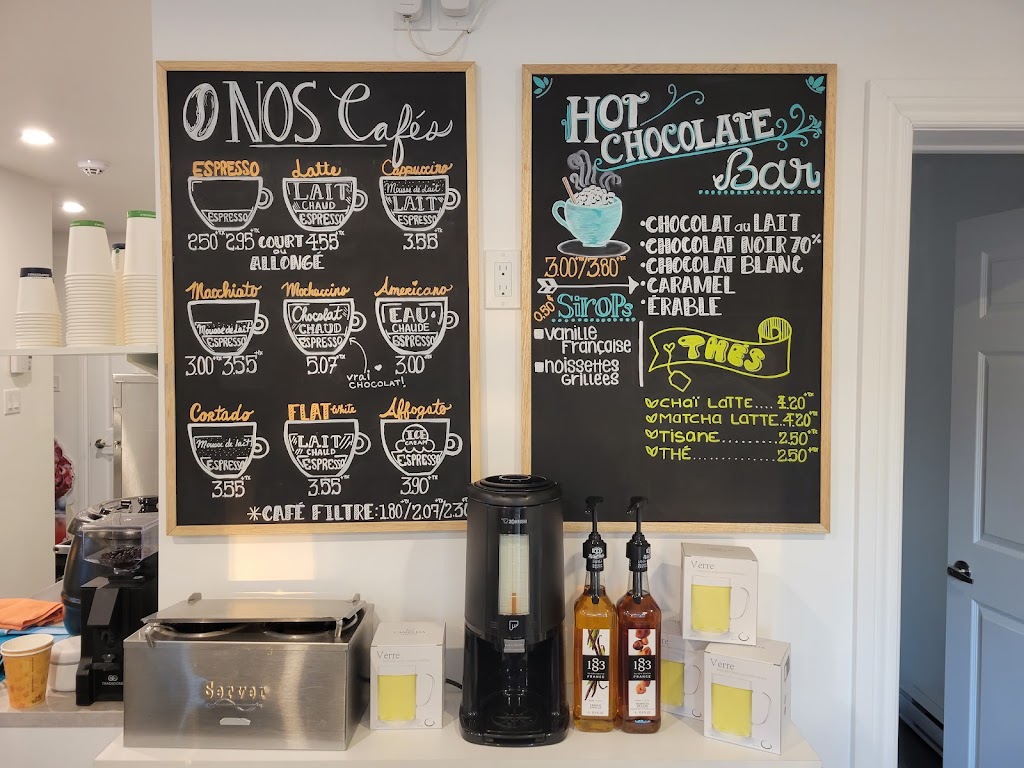 NOS Cafés
ESPRESSO
Latte
Cappuccino
ESPRESSO
LAIT
CHAUD
ESPRESSO
Mousse de Lait
LAIT
ESPRESSO
2.50+TX 2.95+TX COURT ou ALLONGÉ
4.55+TX
3.55+TX
Macchiato
Mochaccino
Americano
Mousse de lait
ESPRESSO
Chocolat
CHAUD
ESPRESSO
EAU
CHAUDE
ESPRESSO
3.00+TX 3.55+TX
5.07+TX
3.00+TX
vrai
CHOCOLAT!
Cortado
FLAT White
Affogato
Mousse de lait
ESPRESSO
LAIT
CHAUD
ESPRESSO
ICE
CREAM
ESPRESSO
3.55+TX
3.55+TX
3.90+TX
*CAFÉ FILTRE: 1.80+TX/2.07+TX/2.30
HOT
CHOCOLATE
Bar
•CHOCOLAT au LAIT
•CHOCOLAT NOIR 70%
•CHOCOLAT BLANC
•CARAMEL
•ÉRABLE
3.00+TX/3.80+TX
0.80+TX
Sirops
vanille
Française
noissettes
Grillées
THÉS
CHAÏ LATTE....4.20+TX
MATCHA LATTE..4.20+TX
Tisane.........2.50+TX
THÉ..............2.50+TX
Server
Verre
ZOJIRUSHI
1883
FRANCE
1883
FRANCE
Verre
Verre